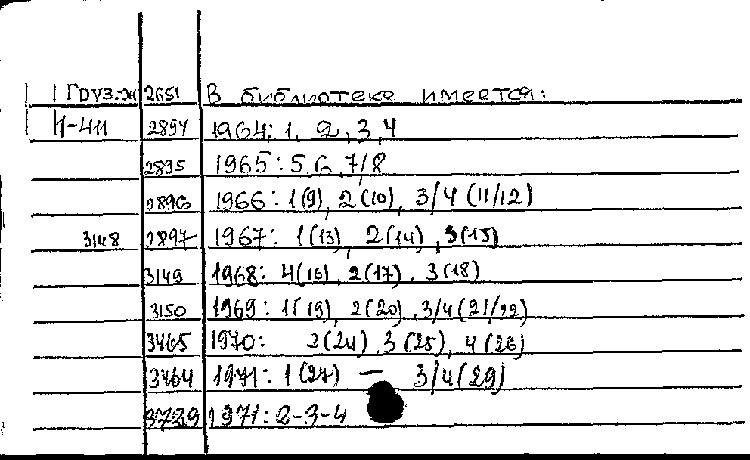 Груз.ж 2651 В библиотеке имеется:
И-411 2894 1964: 1, 2, 3, 4
2895 1965: 5, 6, 7/8
2896 1966: 1(9), 2(10), 3/4 (11/12)
3148 2897 1967: 1(13), 2(14), 3(15)
3149 1968: 4(16), 2(17), 3(18)
3150 1969: 1(19), 2(20), 3/4(21/22)
3465 1970: 2(24), 3(25), 4(26)
3464 1971: 1(27) — 3/4(29)
3739 1971: 2-3-4